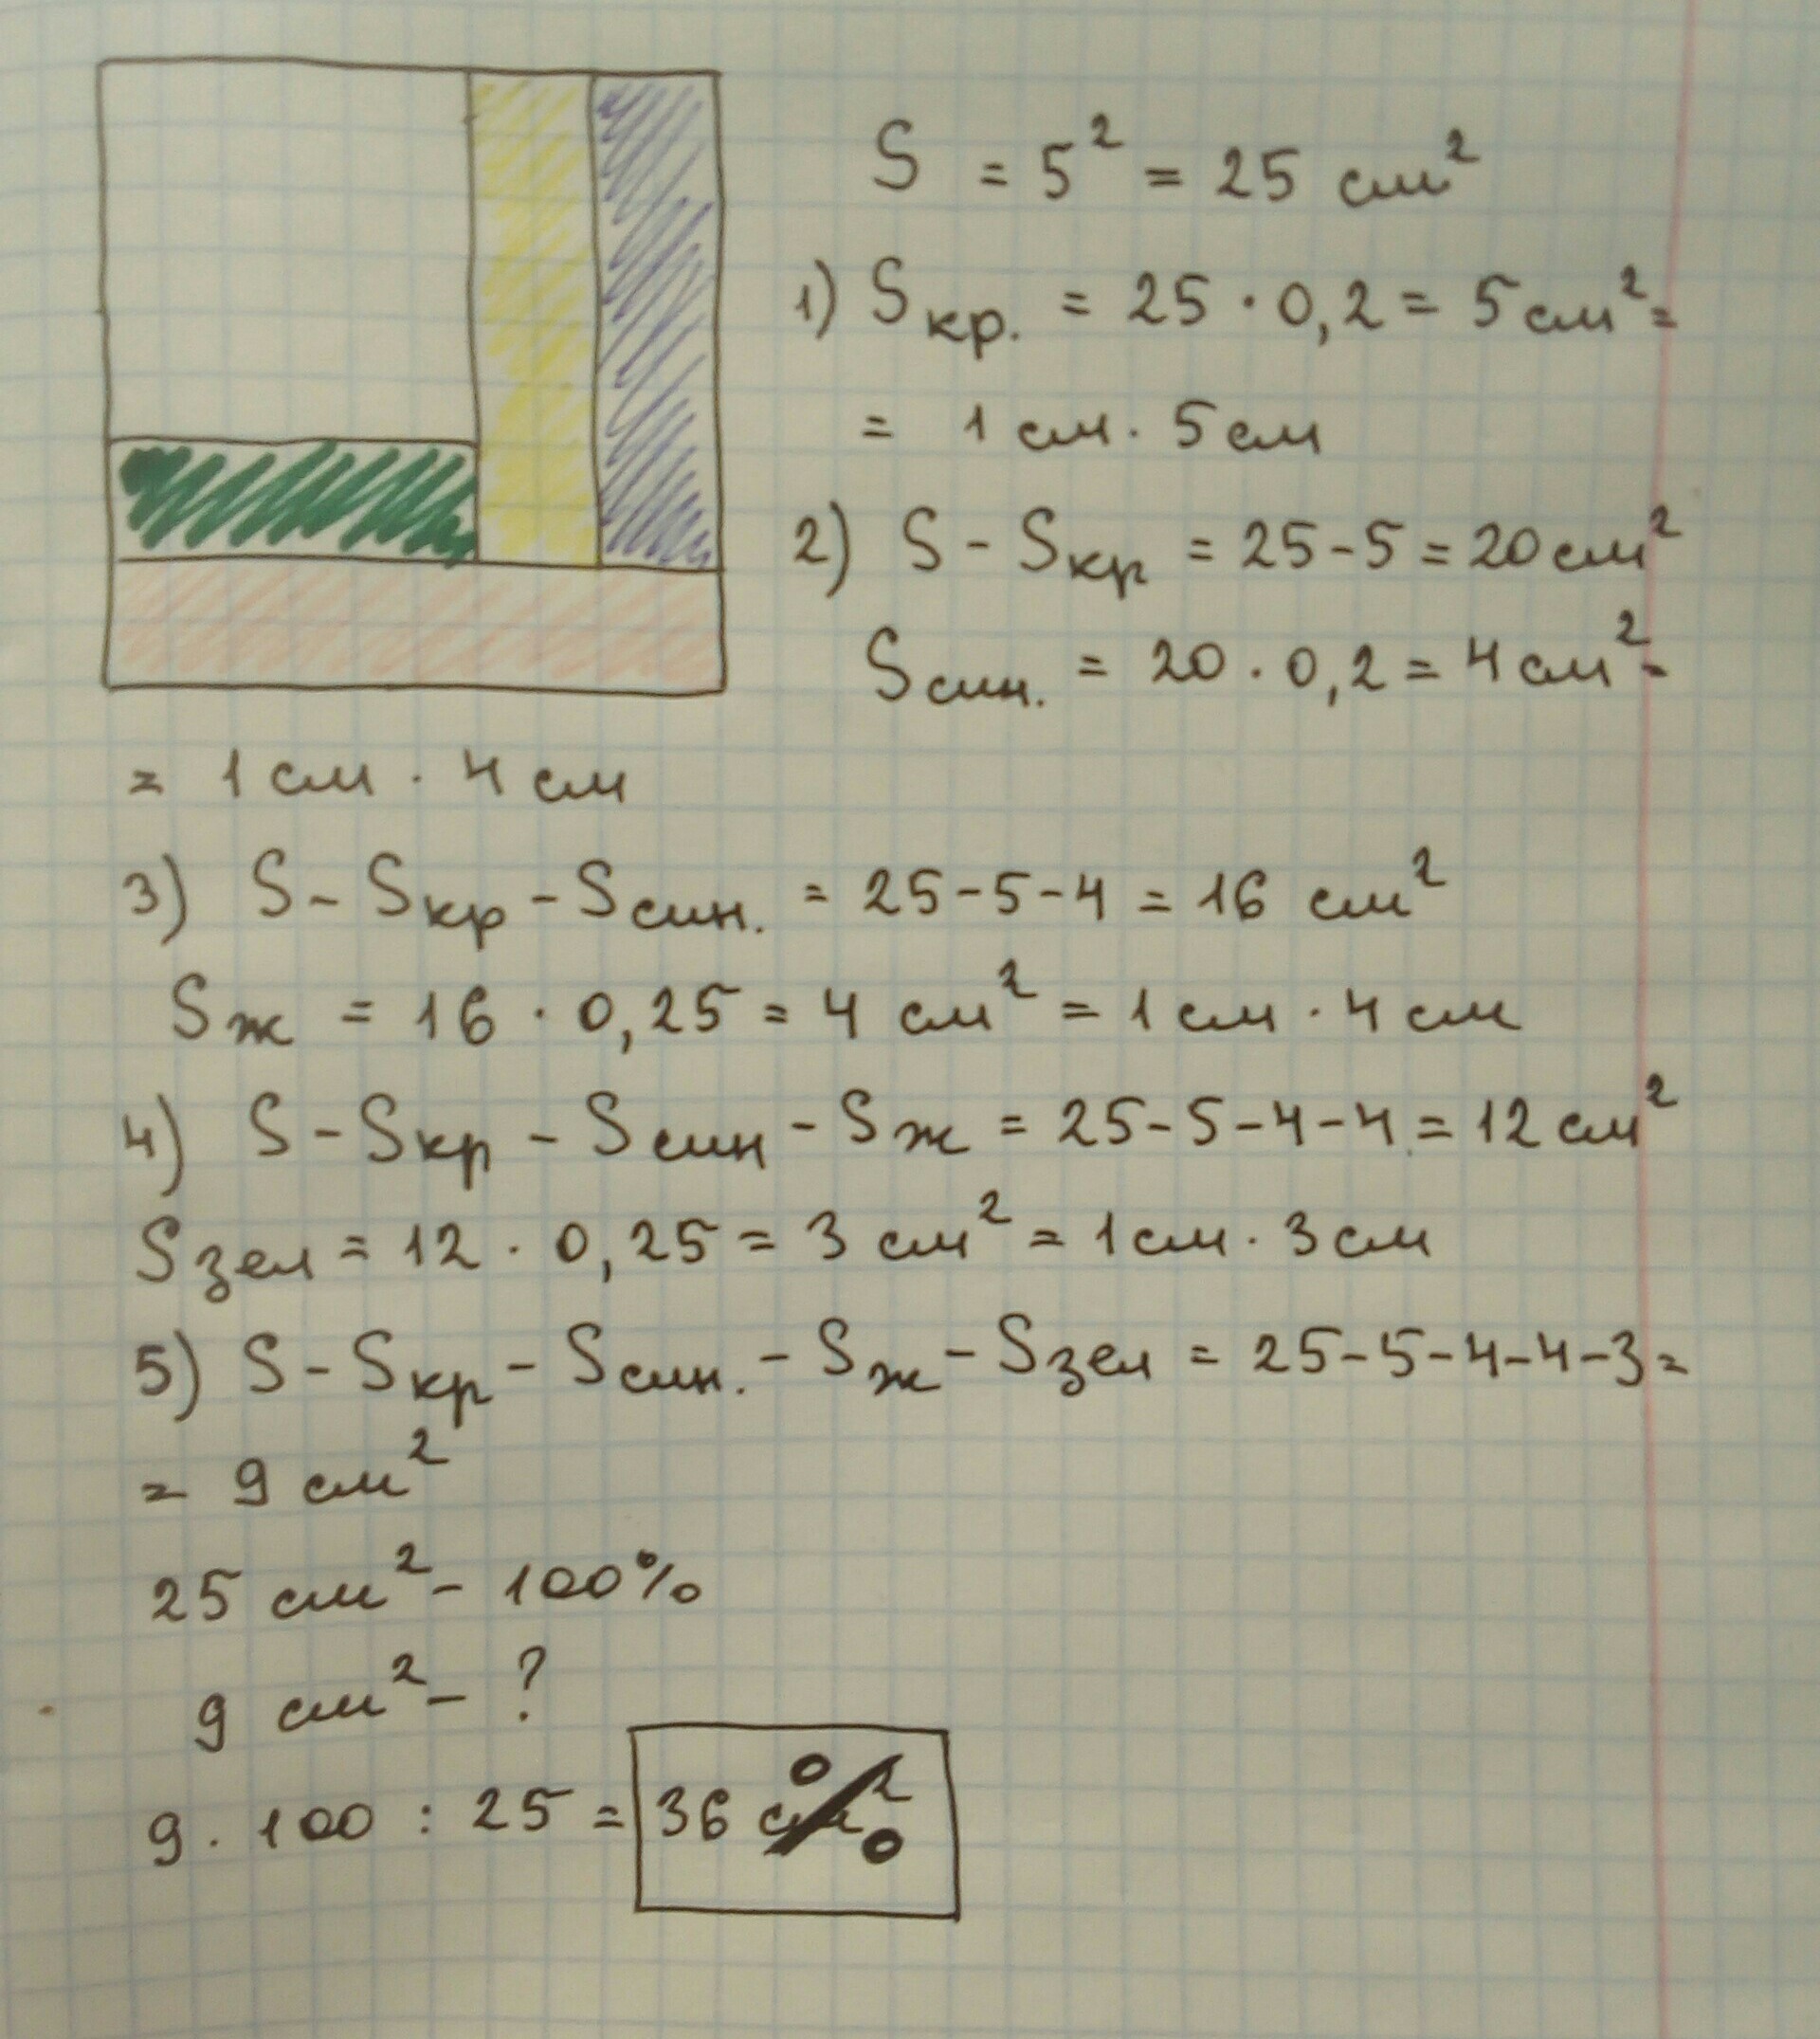 S = 5² = 25 см²
1) Sкр. = 25 · 0,2 = 5 см² =
= 1 см · 5 см
2) S - Sкр = 25 - 5 = 20 см²
Sсин. = 20 · 0,2 = 4 см² =
= 1 см · 4 см
3) S - Sкр - Sсин. = 25 - 5 - 4 = 16 см²
Sж = 16 · 0,25 = 4 см² = 1 см · 4 см
4) S - Sкр - Sсин - Sж = 25 - 5 - 4 - 4 = 12 см²
Sзел = 12 · 0,25 = 3 см² = 1 см · 3 см
5) S - Sкр - Sсин. - Sж - Sзел = 25 - 5 - 4 - 4 - 3 =
= 9 см²
25 см² - 100%
9 см² - ?
9 · 100 : 25 = 36 %